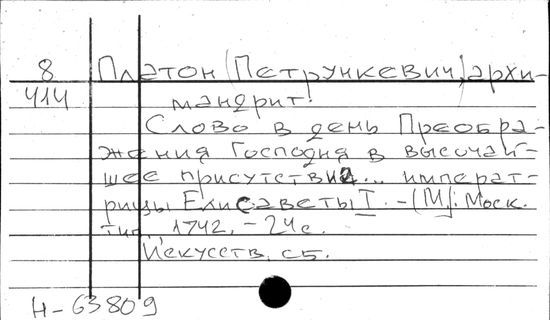 8 Платон (Петрункевич) архи-
414 мандрит.
Слово в день Преобра-
жения Господня в высочай-
шее присутствие... императ-
рицы Елисаветы I. -[М]: Моск.
тип. 1742. - 24 с.
Искусств. сб.
Н-63809